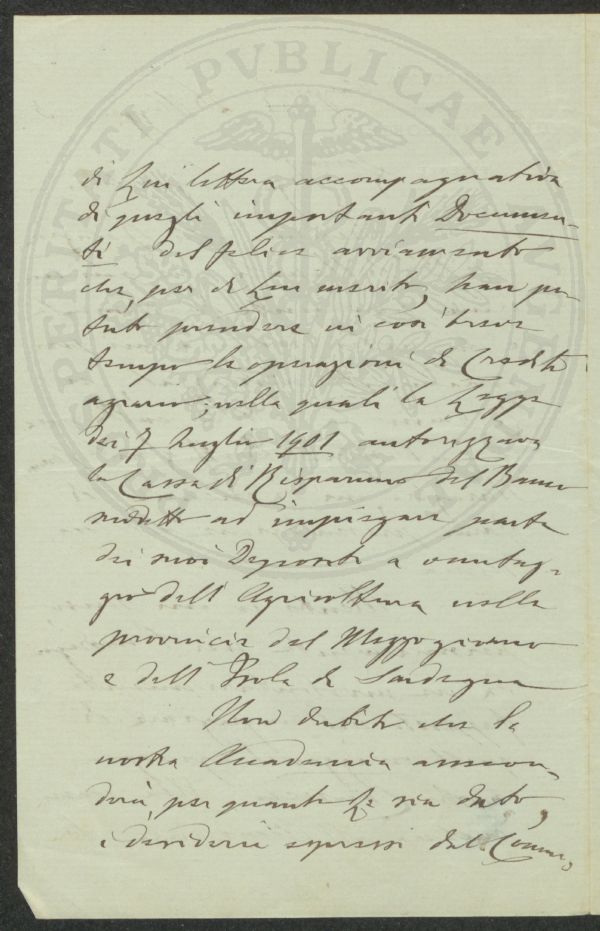 PROSPERITATI PVBLICAE AVGENDAE
di Lui lettera accompagnativa
di quegli importanti Documen-
ti del felice avviamento
che, per di Lui merito, han po-
tuto prendere in così breve
tempo le operazioni di Credito
agrario; nelle quali la Legge
dei 7 Luglio 1901 autorizzava
la Cassa di Risparmio del Banco
suddetto ad impiegare parte
dei suoi Depositi a vantag-
gio dell'Agricoltura nelle
provincie del Mezzogiorno
e dell'Isola di Sardegna
Non dubito che la
nostra Accademia asseconderà
per quanto Le sia dato,
i desiderii espressi dal Comm.